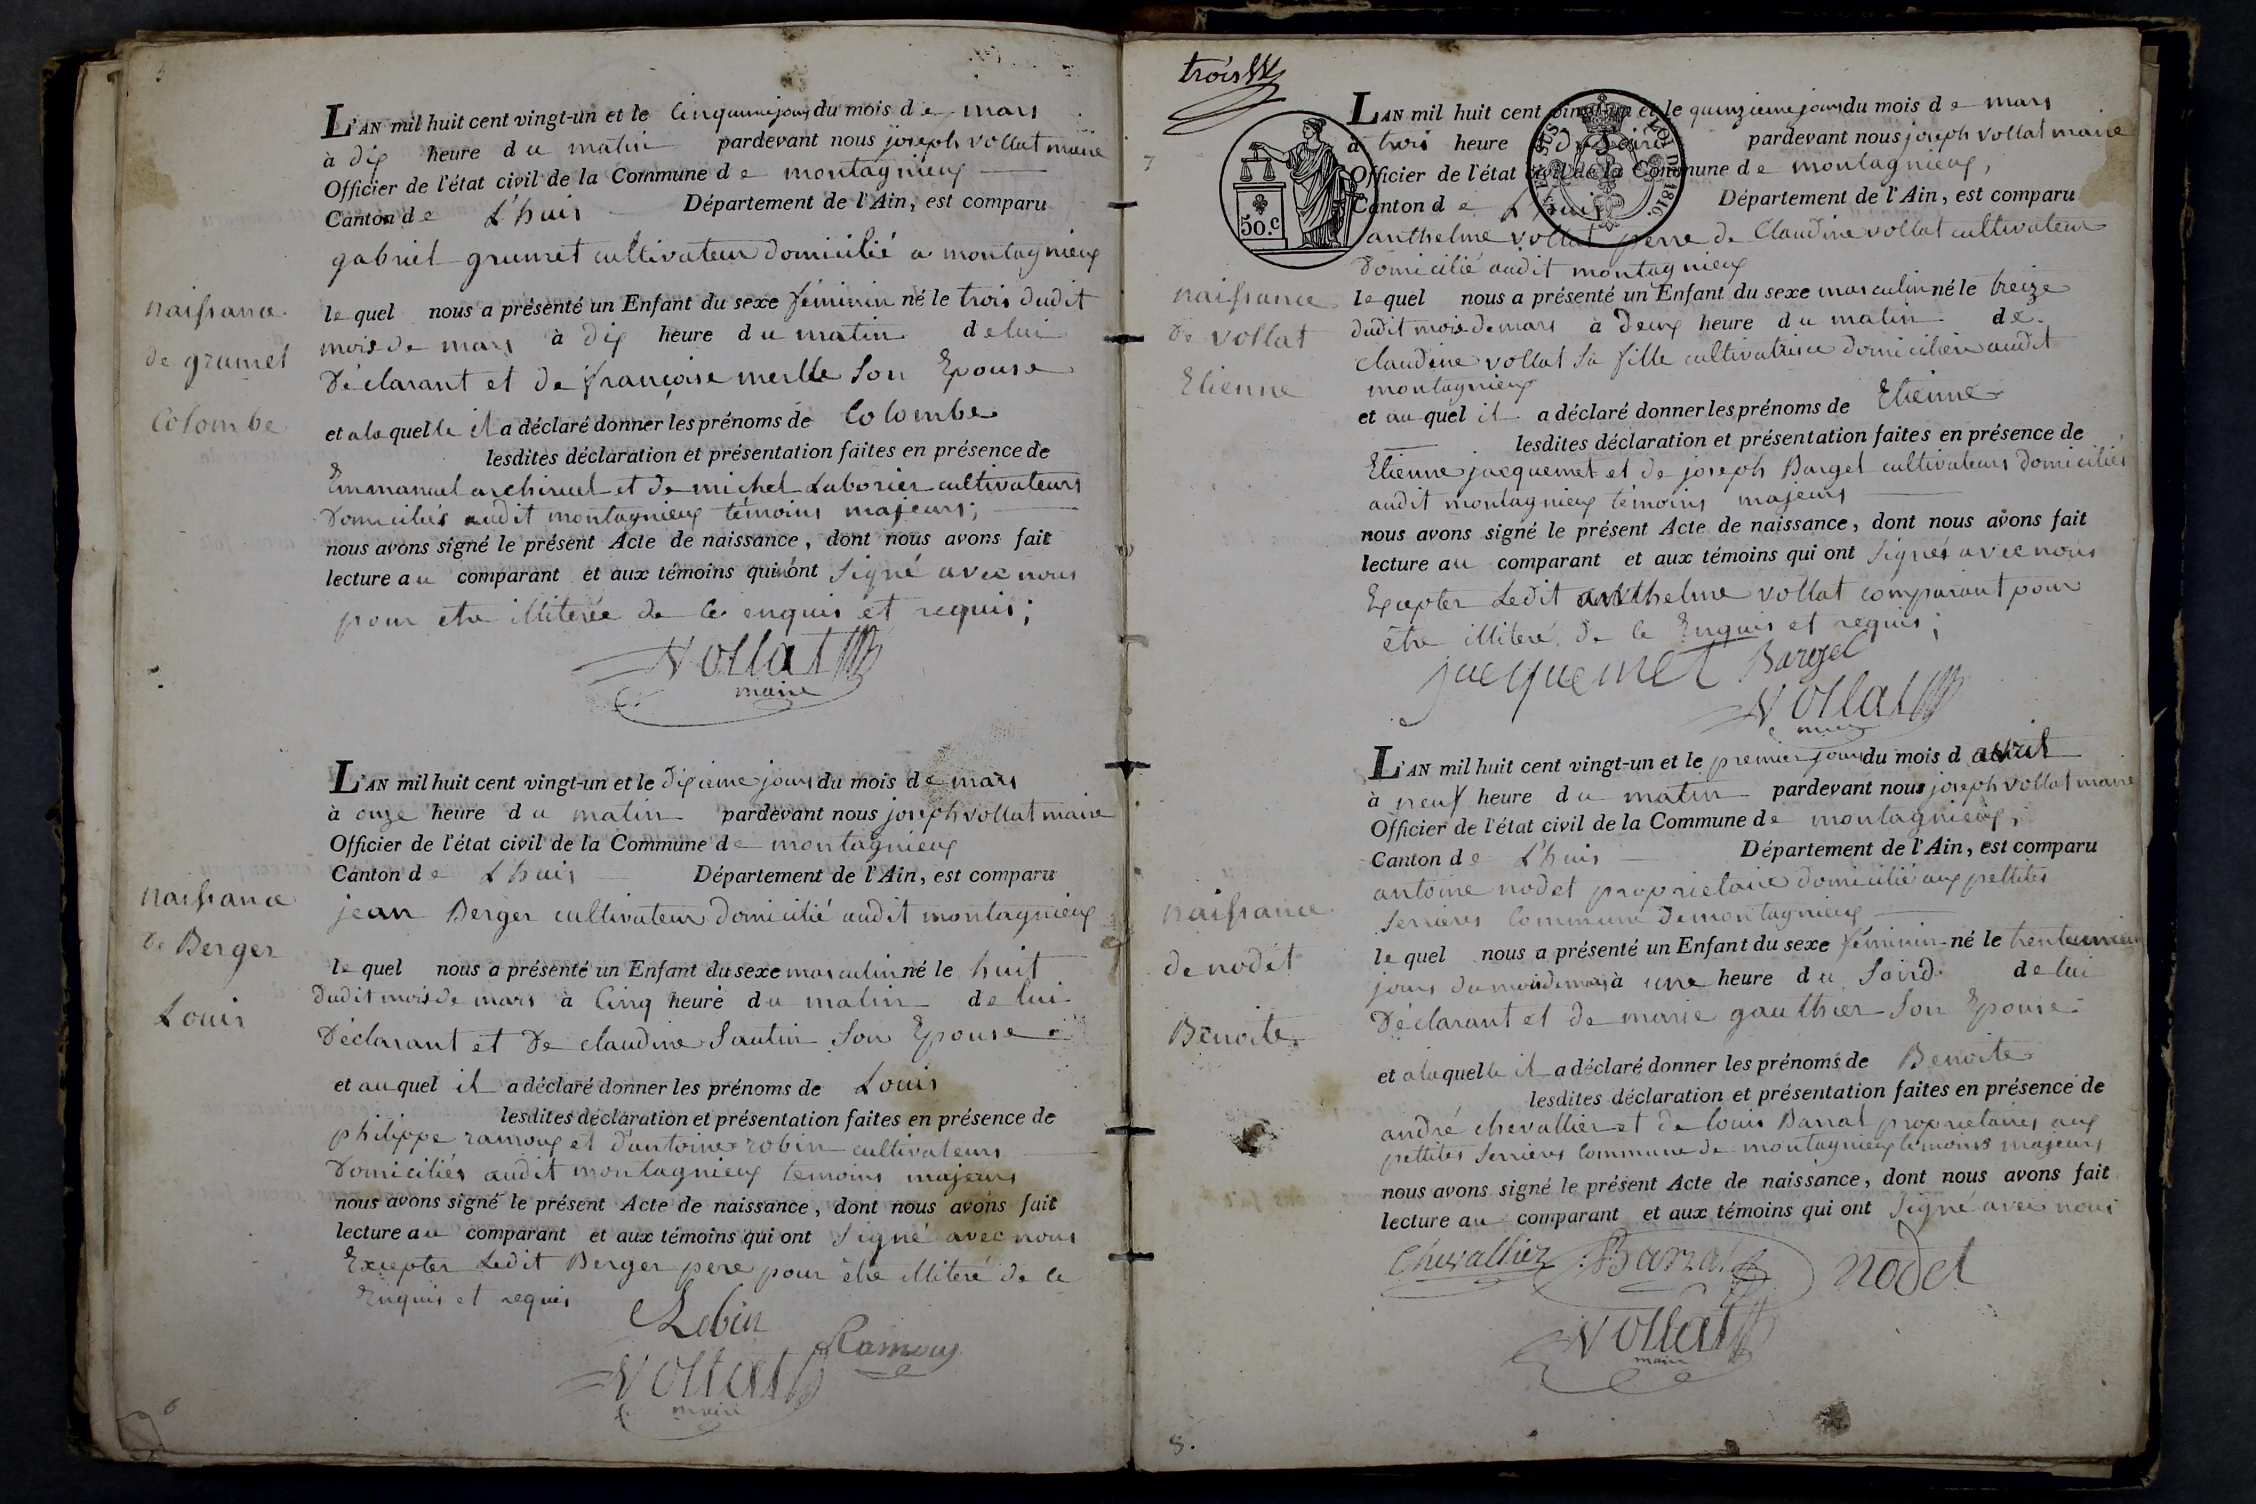 5
L'AN mil huit cent vingt-un et le Cinquieme jours du mois de mars
à dix heure du matin pardevant nous joseph vollat maire
Officier de l'état civil de la Commune de montagnieux
Canton de L'huis Département de l'Ain, est comparu
gabriel grumet cultivateur domicilié a montagnieux
naissance
de grumet
Colombe
le quel nous a présenté un Enfant du sexe féminin né le trois dudit
mois de mars à dix heure du matin de lui
Déclarant et de françoise merlle Son Epouse
et a laquelle il a déclaré donner les prénoms de Colombe
lesdites déclaration et présentation faites en présence de
Emmanuel et de michel Laborier cultivateurs
Domiciliés audit montagnieux témoins majeurs;
nous avons signé le présent Acte de naissance, dont nous avons fait
lecture au comparant et aux témoins qui ont Signé avec nous
pour etre illiterée de ce enquis et requis;
Vollat
maire
L'AN mil huit cent vingt-un et le dixieme jours du mois de mars
à onze heure du matin pardevant nous joseph vollat maire
Officier de l'état civil de la Commune de montagnieux
Canton de L'huis Département de l'Ain, est comparu
jean Berger cultivateur domicilié audit montagnieux
naissance
de Berger
Louis
le quel nous a présenté un Enfant du sexe masculin né le huit
dudit mois de mars à Cinq heure du matin de lui
Déclarant et De claudine Sautin Son Epouse
et auquel il a déclaré donner les prénoms de Louis
lesdites déclaration et présentation faites en présence de
philippe ramoux et d'antoine robin cultivateurs
Domiciliés audit montagnieux temoins majeurs
nous avons signé le présent Acte de naissance, dont nous avons fait
lecture au comparant et aux témoins qui ont Signé avec nous
Excepter Ledit Berger pere pour être illiteré de ce
Enquis et requis
Robin
Ramoux
Vollat
maire
6
trois
7
50.C
LOI DE 1816.
L'AN mil huit cent vingt-un et le quinzieme jours du mois de mars
à trois heure du Soird pardevant nous joseph vollat maire
Officier de l'état civil de la Commune de montagnieux,
Canton de L'huis Département de l'Ain, est comparu
anthelme vollat perre de Claudine vollat cultivateur
Domicilié audit montagnieux
naissance
de vollat
Etienne
le quel nous a présenté un Enfant du sexe masculin né le treize
dudit mois de mars à deux heure du matin de
claudine vollat Sa fille cultivatrice domiciliere audit
montagnieux
et auquel il a déclaré donner les prénoms de Etienne
lesdites déclaration et présentation faites en présence de
Etienne jacquemet et de joseph Barget cultivateurs domiciliés
audit montagnieux témoins majeurs
nous avons signé le présent Acte de naissance, dont nous avons fait
lecture au comparant et aux témoins qui ont Signés avec nous
Excepter Ledit anthelme vollat comparant pour
être illiteré de ce Enquis et requis;
jacquemet Barget
Vollat
maire
L'AN mil huit cent vingt-un et le premier jours du mois d avril
à neuf heure du matin pardevant nous joseph vollat maire
Officier de l'état civil de la Commune de montagnieux;
Canton de L'huis Département de l'Ain, est comparu
antoine nodet proprietaire domicilié aux pettites
Serrieres Commune de montagnieux
naissance
de nodet
Benoite
le quel nous a présenté un Enfant du sexe féminin né le trenteunieme
jours du mois de mars à une heure du Soird de lui
Déclarant et de marie gauthier Son Epouse
et a laquelle il a déclaré donner les prénoms de Benoite
lesdites déclaration et présentation faites en présence de
andré chevallier et de louis Barrat proprietaires aux
pettites Serrieres Commune de montagnieux témoins majeurs
nous avons signé le présent Acte de naissance, dont nous avons fait
lecture au comparant et aux témoins qui ont Signé avec nous
Chevallier Barrat nodet
Vollat
maire
8.